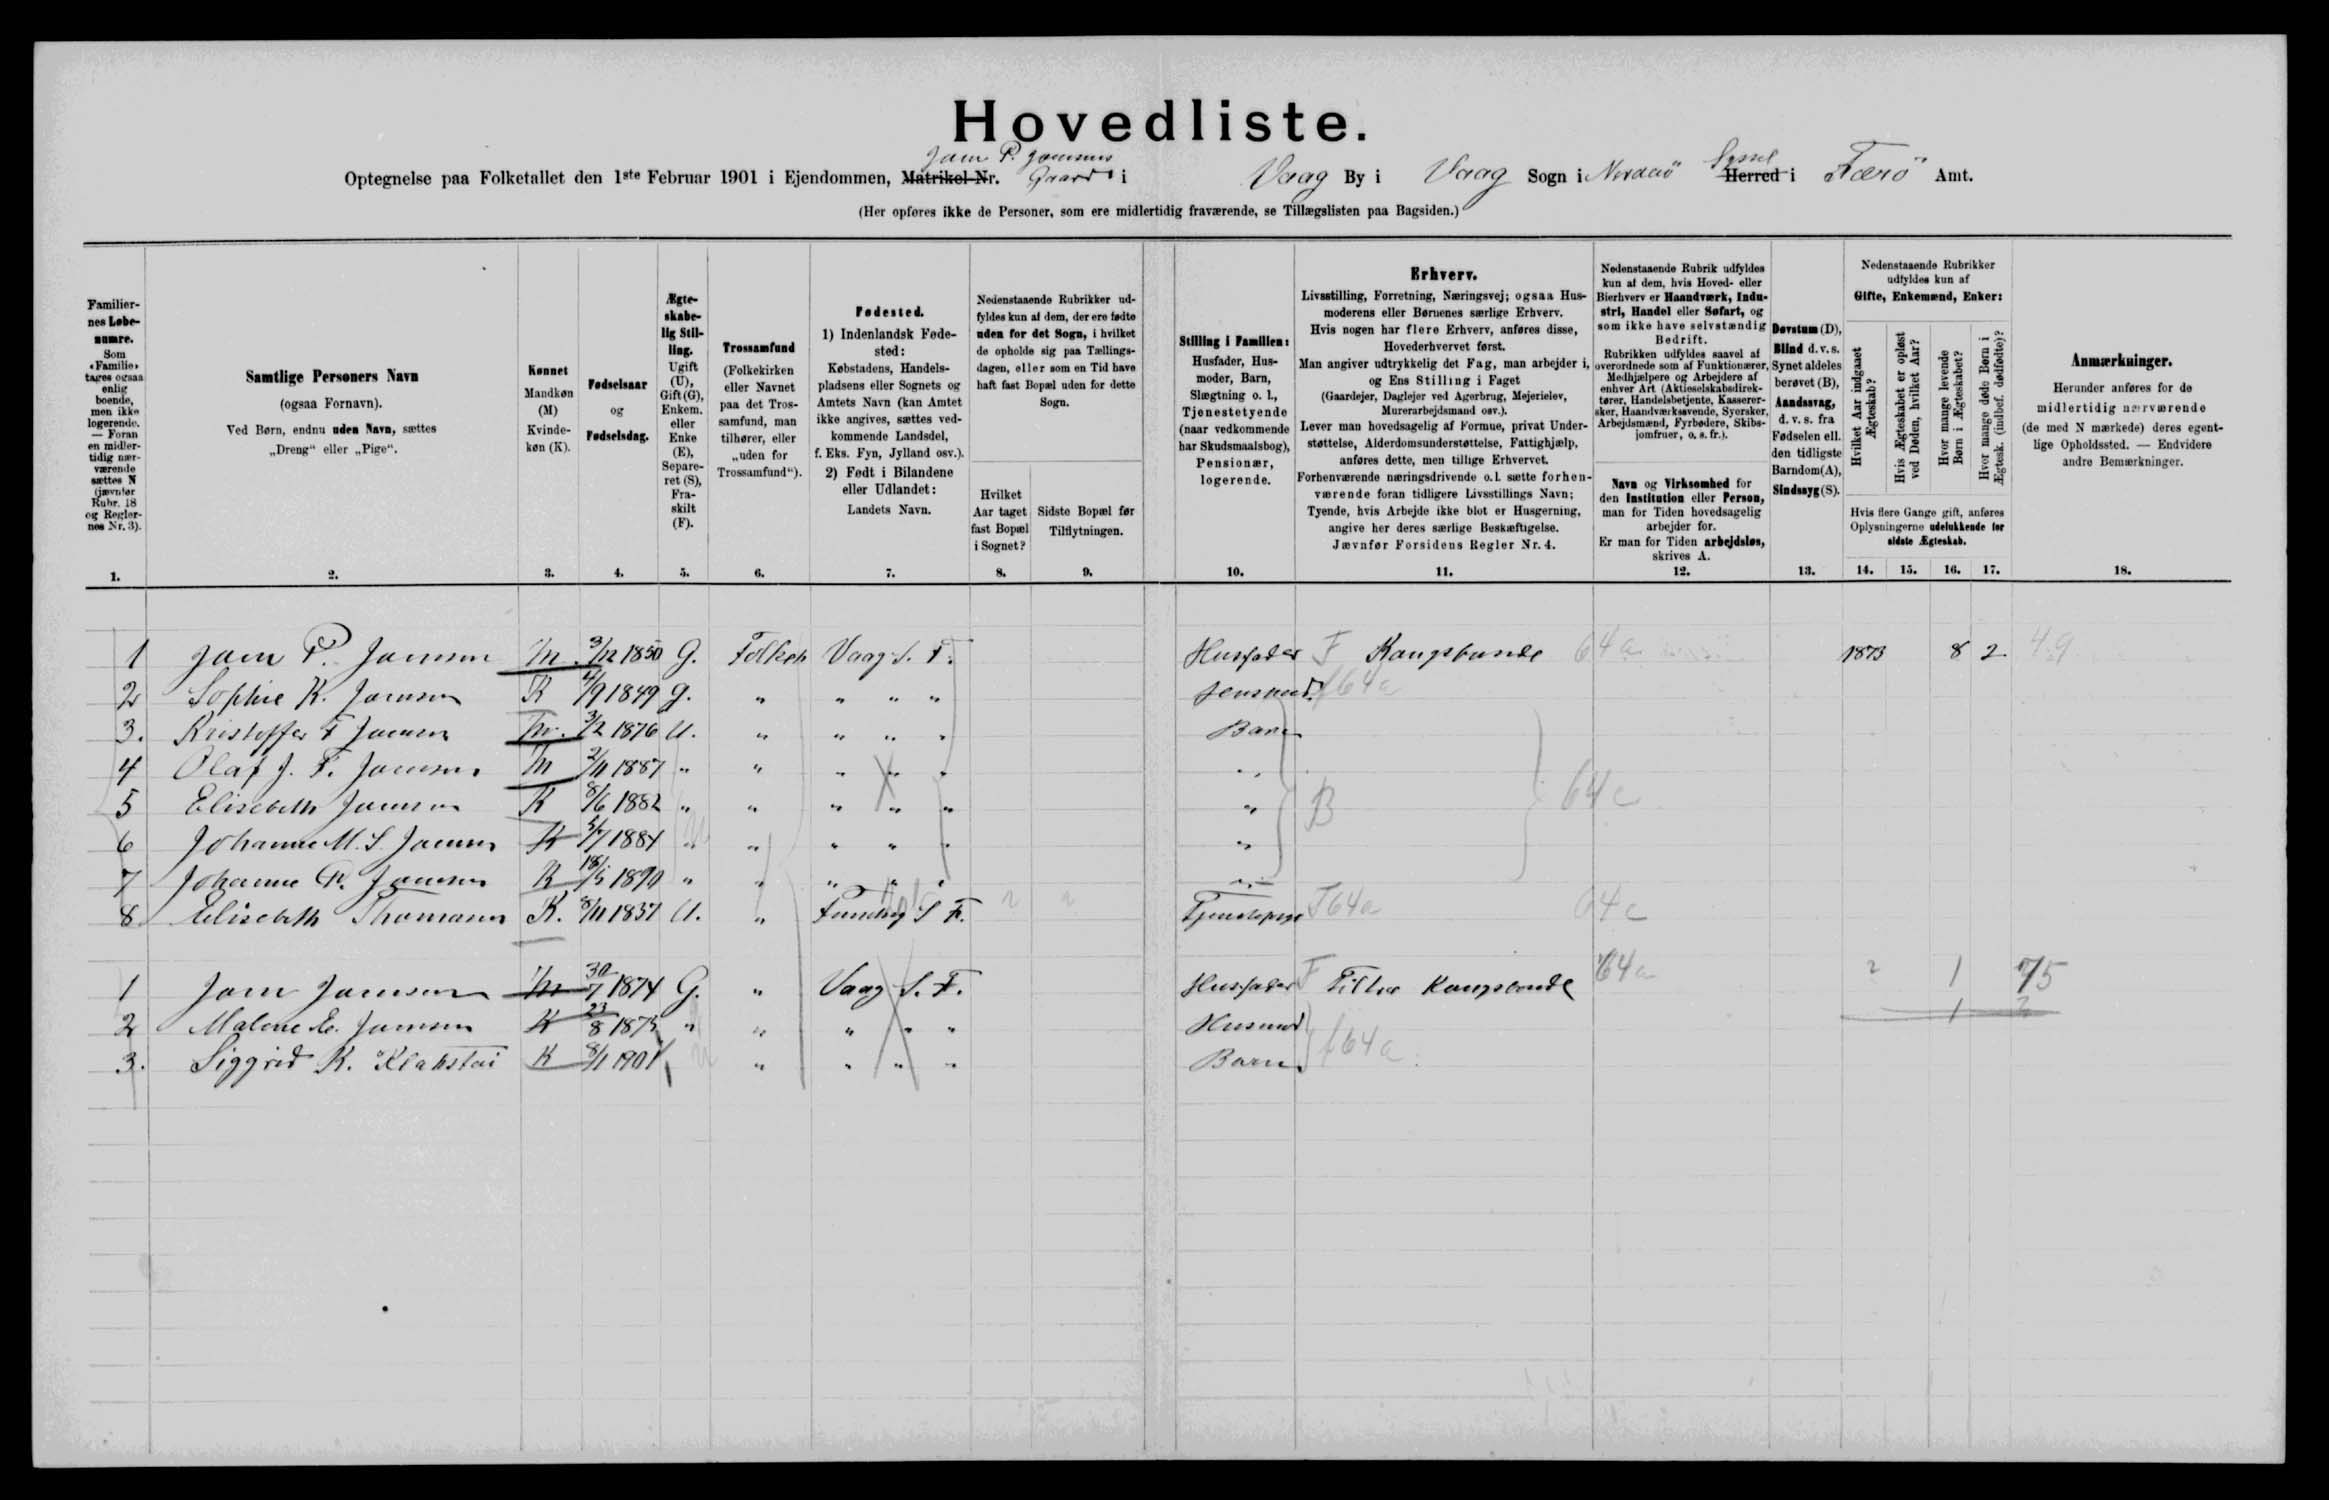 Hovedliste.
Joen P. Joensens
Optegnelse paa Folketallet den 1ste Februar 1901 i Ejendommen, Matrikel-Nr. Gaard i Vaag By i Vaag Sogn i Norderö Syssel Herred i Færö Amt.
(Her opføres ikke de Personer, som ere midlertidig fraværende, se Tillægslisten paa Bagsiden.)
Familiernes Løbenumre.
Som «Familie» tages ogsaa enlig boende, men ikke logerende. — Foran en midlertidig nærværende sættes N (jævnfør Rubr. 18 og Reglernes Nr. 3).
1.
Samtlige Personers Navn
(ogsaa Fornavn).
Ved Børn, endnu uden Navn, sættes
„Dreng" eller „Pige".
2.
Kønnet
Mandkøn (M)
Kvindekøn (K).
3.
Fødselsaar
og
Fødselsdag.
4.
Ægteskabelig Stilling.
Ugift (U), Gift (G), Enkem. eller Enke (E), Separeret (S), Fraskilt (F).
5.
Trossamfund
(Folkekirken eller Navnet paa det Trossamfund, man tilhører, eller „uden for Trossamfund").
6.
Fødested.
1) Indenlandsk Fødested:
Købstadens, Handelspladsens eller Sognets og Amtets Navn (kan Amtet ikke angives, sættes vedkommende Landsdel, f. Eks. Fyn, Jylland osv.).
2) Født i Bilandene eller Udlandet:
Landets Navn.
7.
Nedenstaaende Rubrikker udfyldes kun af dem, der ere fødte uden for det Sogn, i hvilket de opholde sig paa Tællingsdagen, eller som en Tid have haft fast Bopæl uden for dette Sogn.
Hvilket Aar taget fast Bopæl i Sognet?
8.
Sidste Bopæl før Tilflytningen.
9.
Stilling i Familien:
Husfader, Husmoder, Barn, Slægtning o. l., Tjenestetyende (naar vedkommende har Skudsmaalsbog), Pensionær, logerende.
10.
Erhverv.
Livsstilling, Forretning, Næringsvej; ogsaa Husmoderens eller Børnenes særlige Erhverv.
Hvis nogen har flere Erhverv, anføres disse, Hovederhvervet først.
Man angiver udtrykkelig det Fag, man arbejder i, og Ens Stilling i Faget
(Gaardejer, Daglejer ved Agerbrug, Mejerielev, Murerarbejdsmand osv.).
Lever man hovedsagelig af Formue, privat Understøttelse, Alderdomsunderstøttelse, Fattighjælp, anføres dette, men tillige Erhvervet.
Forhenværende næringsdrivende o. l. sætte forhenværende foran tidligere Livsstillings Navn;
Tyende, hvis Arbejde ikke blot er Husgerning, angive her deres særlige Beskæftigelse.
Jævnfør Forsidens Regler Nr. 4.
11.
Nedenstaaende Rubrik udfyldes kun af dem, hvis Hoved- eller Bierhverv er Haandværk, Industri, Handel eller Søfart, og som ikke have selvstændig Bedrift.
Rubrikken udfyldes saavel af overordnede som af Funktionærer, Medhjælpere og Arbejdere af enhver Art (Aktieselskabsdirektører, Handelsbetjente, Kasserersker, Haandværkssvende, Syersker, Arbejdsmænd, Fyrbødere, Skibsjomfruer, o. s. fr.).
Navn og Virksomhed for den Institution eller Person, man for Tiden hovedsagelig arbejder for.
Er man for Tiden arbejdsløs, skrives A.
12.
Døvstum (D), Blind d. v. s. Synet aldeles berøvet (B), Aandssvag, d. v. s. fra Fødselen ell. den tidligste Barndom (A), Sindssyg (S).
13.
Nedenstaaende Rubrikker udfyldes kun af
Gifte, Enkemænd, Enker:
Hvilket Aar indgaaet Ægteskab?
Hvis Ægteskabet er opløst ved Døden, hvilket Aar?
Hvor mange levende Børn i Ægteskabet?
Hvor mange døde Børn i Ægtesk. (indbef. dødfødte)?
Hvis flere Gange gift, anføres Oplysningerne udelukkende for sidste Ægteskab.
14. 15. 16. 17.
Anmærkninger.
Herunder anføres for de midlertidig nærværende (de med N mærkede) deres egentlige Opholdssted. — Endvidere andre Bemærkninger.
18.
1 Joen P. Joensen M. 3/12 1850 G. Folkek Vaag S. F. Husfader F Kongsbonde 64a 1873 8 2 49
2 Sophie K. Joensen K 4/9 1849 G. " " " " f64a
3. Kristoffer F Joensen M. 3/2 1876 U. " " " " Barn
4 Olaf J. F. Joensen M 2/11 1887 " " " " " "
5 Elisebeth Joensen K 8/6 1882 " " " " " " B 64c
6 Johanne M. S. Joensen K 5/7 1884 " " " " " "
7 Johanne P. Joensen K 18/5 1890 " " " " " "
8 Elisebeth Thomasen K. 8/11 1837 U. " Funding S F. Tjenestepige T64a 64c
1 Joen Joensen M 30/7 1874 G. " Vaag S. F. Husfader F Fisker Kongsbonde 64a 2 1 75
2 Malene E. Joensen K 23/8 1875 " " " " " Husmod 1 2
3. Siggrid K. Klakstai K 8/1 1901 " " " " Barn f64a